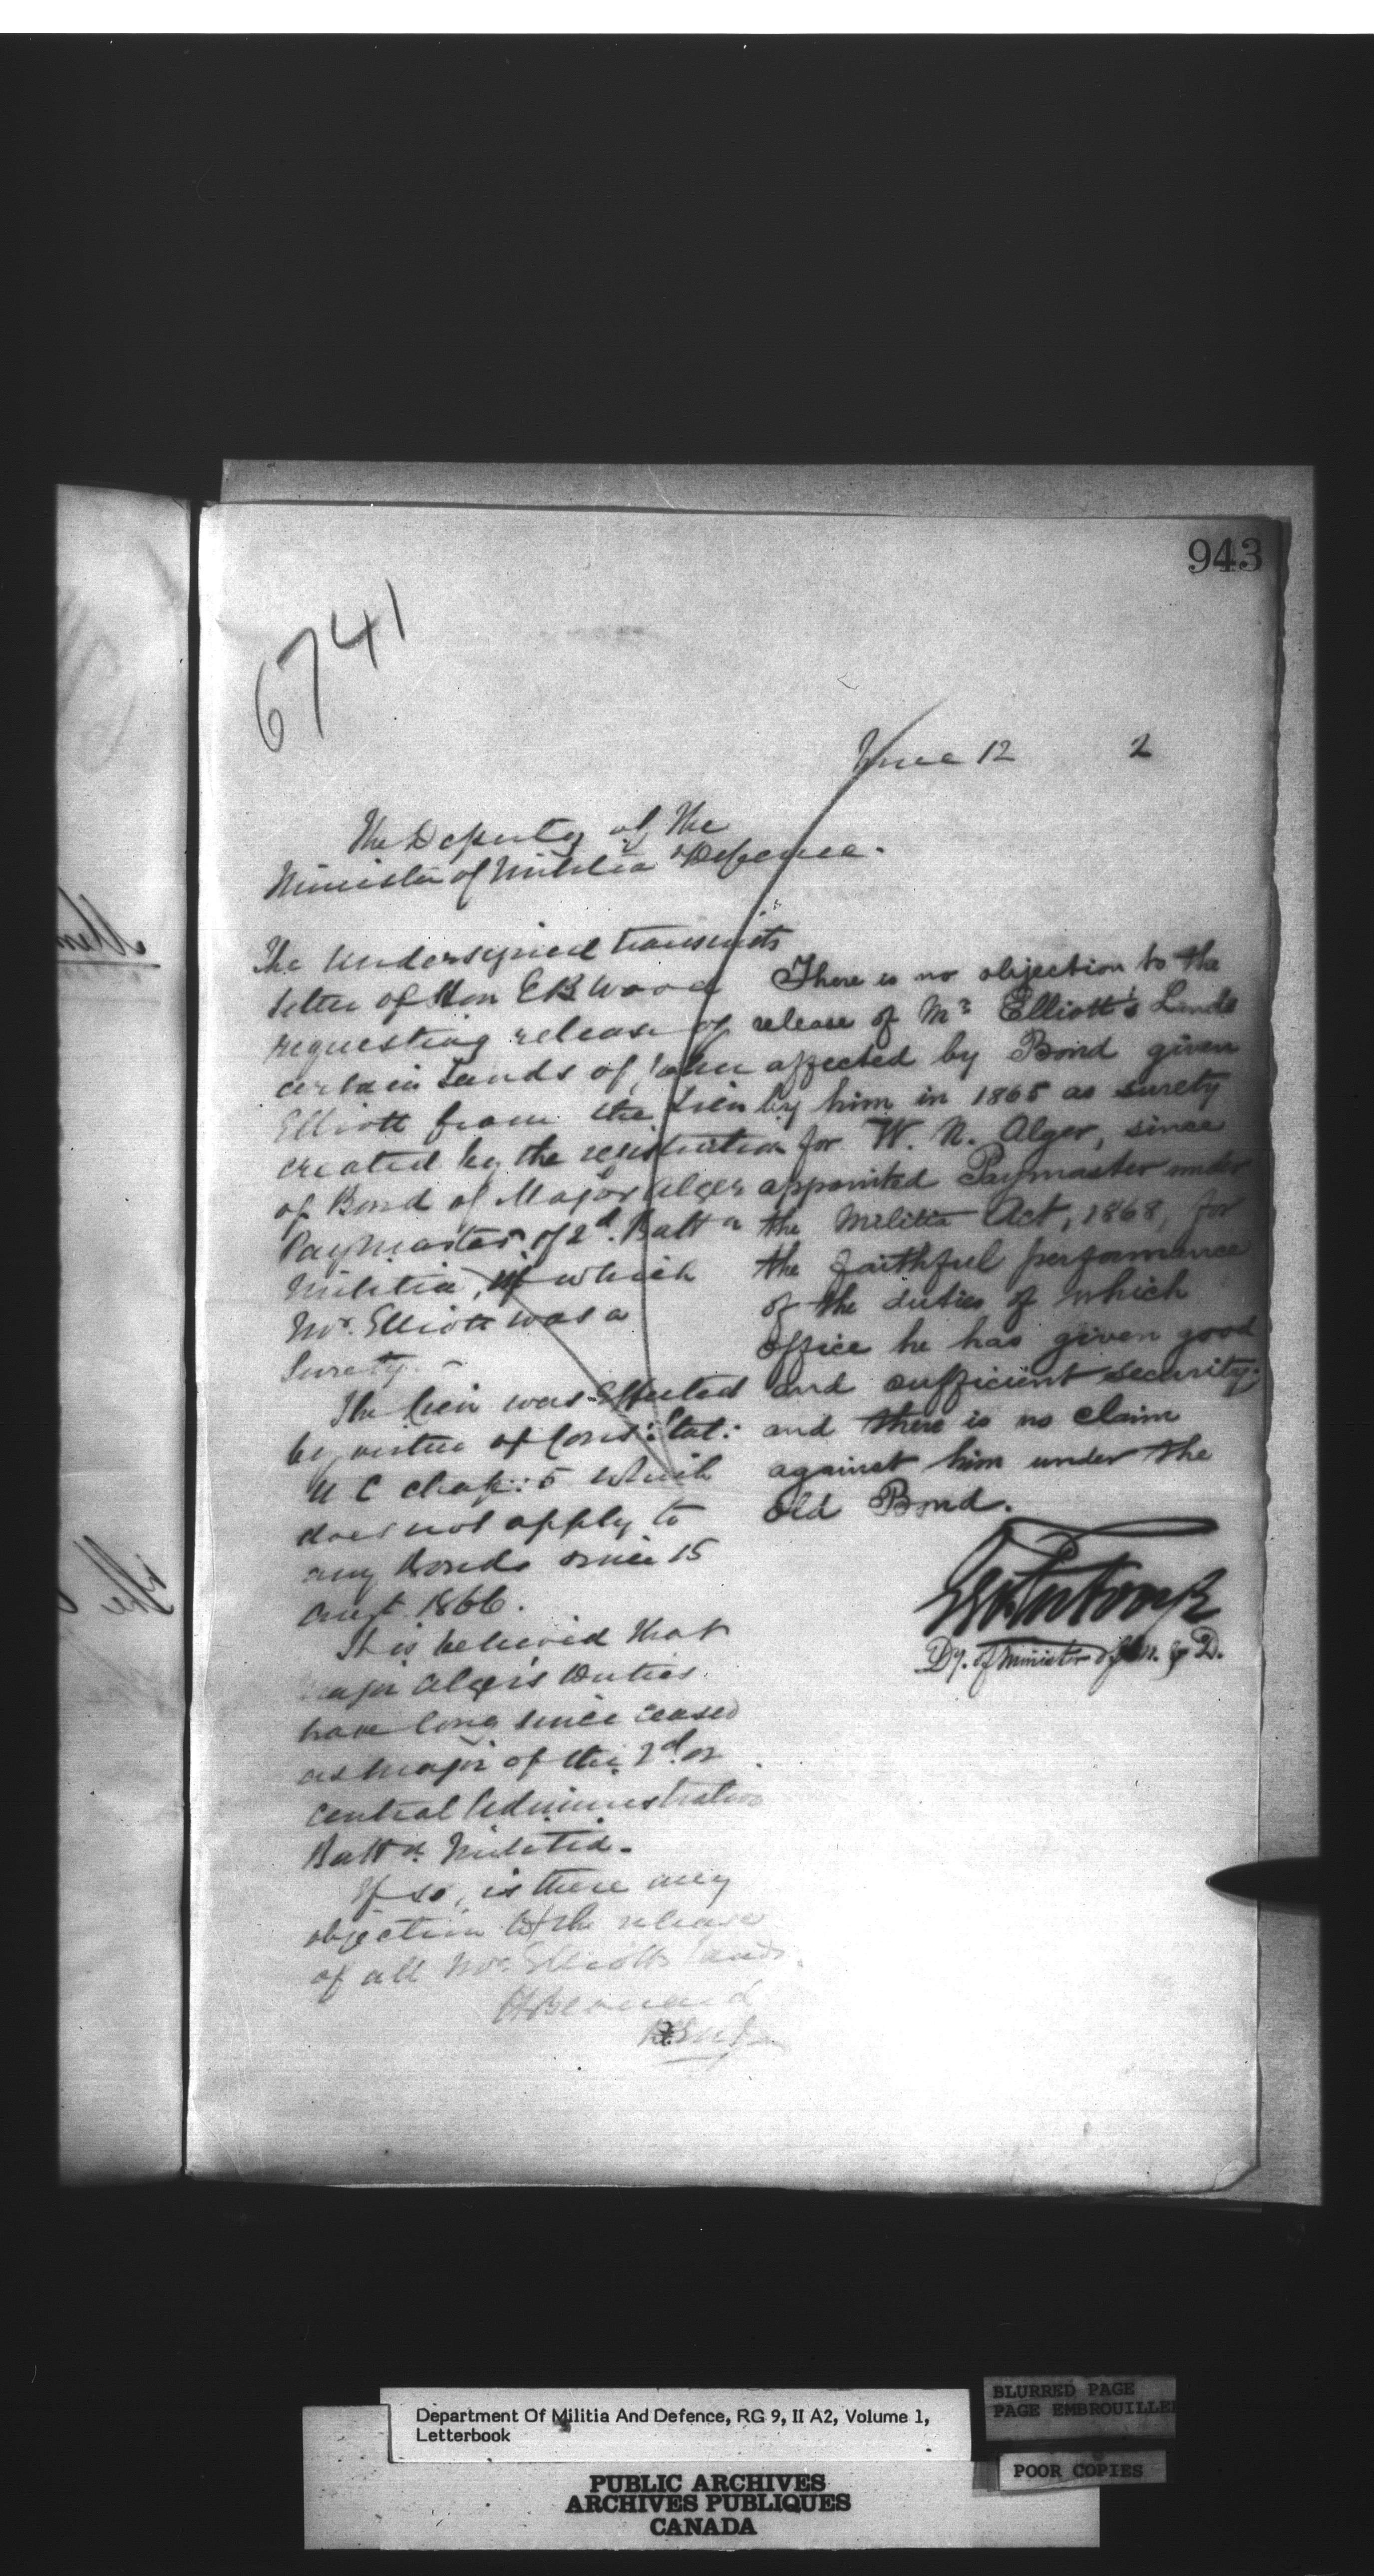 943
6741
June 12 2
The Deputy of the
Minister of Militia & Defence.
The undersigned transmits
letter of Hon E B Wood
requesting release of
certain Lands of John
Elliott from the Lien
created by the registration
of Bond of Major Alger
Paymaster of 2d. Battn
Militia, of which
Mr. Elliott was a
Surety.
The lien was effected
by virtue of Cons: Stat:
U C chap: 5 which
does not apply to
any bonds since 15
Augt 1866.
It is believed that
Major Alger's duties
have long since ceased
as Major of the 2d. or
Central Administrative
Battn. Militia.
If so, is there any
objection to the release
of all Mr. Elliotts lands.
H Bernard
There is no objection to the
release of Mr Elliott's Lands
affected by Bond given
by him in 1865 as surety
for W. N. Alger, since
appointed Paymaster under
the Militia Act, 1868, for
the faithful performance
of the duties of which
office he has given good
and sufficient security;
and there is no claim
against him under the
old Bond.
Dy. of Minister of M. & D.
Department Of Militia And Defence, RG 9, II A2, Volume 1,
Letterbook
BLURRED PAGE
PAGE EMBROUILLEE
POOR COPIES
PUBLIC ARCHIVES
ARCHIVES PUBLIQUES
CANADA